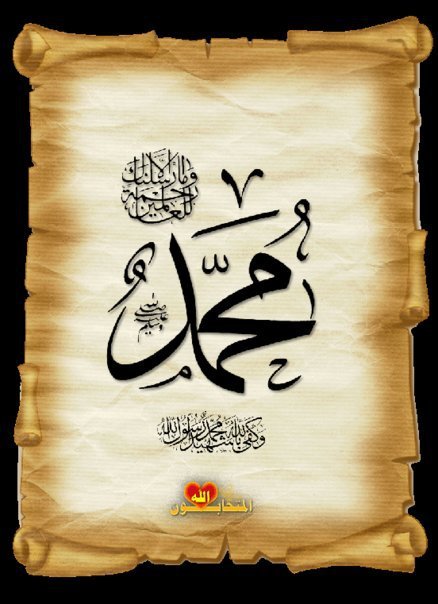 وما أرسلناك
إلا رحمة
للعالمين
محمد
صلى الله عليه وسلم
وكفى بالله شهيدا محمد رسول الله
المتحابون
الله